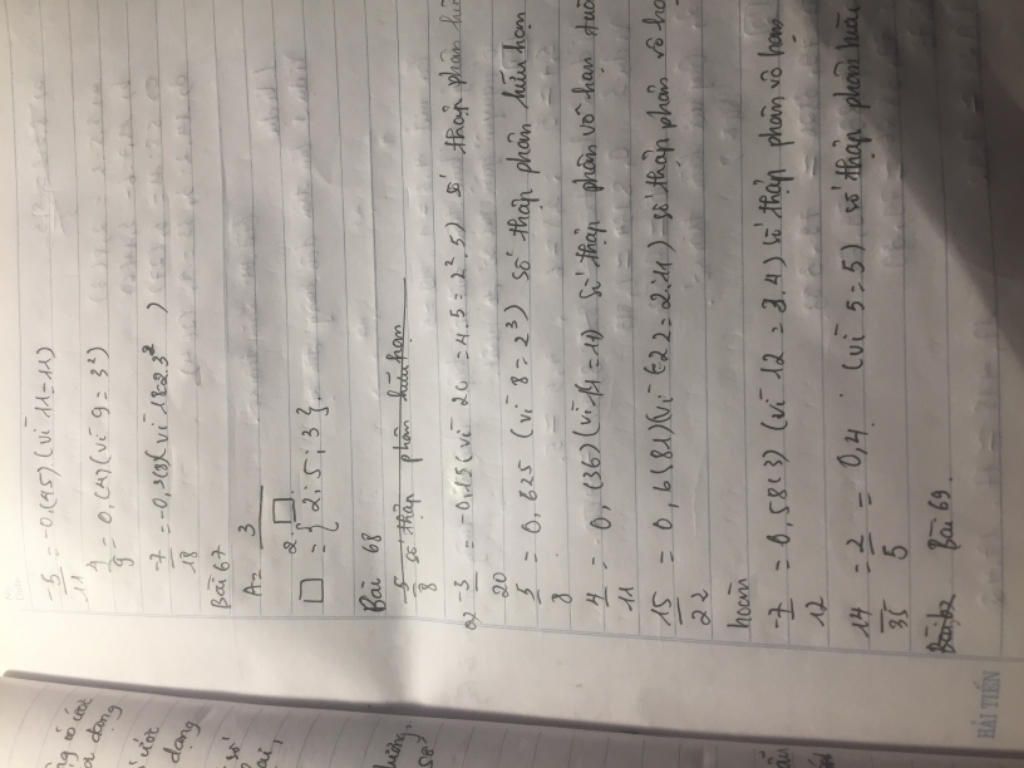 -5/11 = -0,(45) (vì 11=11)
4/9 = 0,(4) (vì 9 = 3²)
-7/18 = -0,3(8) (vì 18=2.3²)
Bài 67
A = 3/2.□
□ = { 2; 5; 3 }
Bài 68
5/8 số thập phân hữu hạn
a) -3/20 = -0,15 (vì 20 = 4.5 = 2².5) số thập phân hữu
5/8 = 0,625 (vì 8 = 2³) số thập phân hữu hạn
4/11 = 0,(36) (vì 11 = 11) số thập phân vô hạn tuần
15/22 = 0,6(81) (vì 22 = 2.11) = số thập phân vô hạ
hoàn
-7/12 = 0,58(3) (vì 12 = 3.4) số thập phân vô hạn
14/35 = 2/5 = 0,4 (vì 5 = 5) số thập phân hữu
Bài 69.
HẢI TIẾN
số
dạng